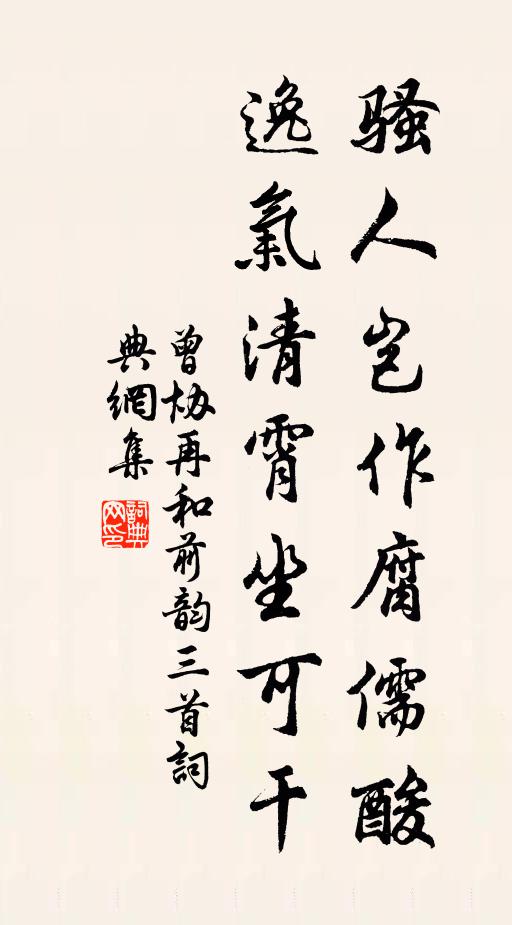 騷人豈作腐儒酸
逸氣清霄坐可干
曾协再和前韵三首詞
典網集
詞典网印